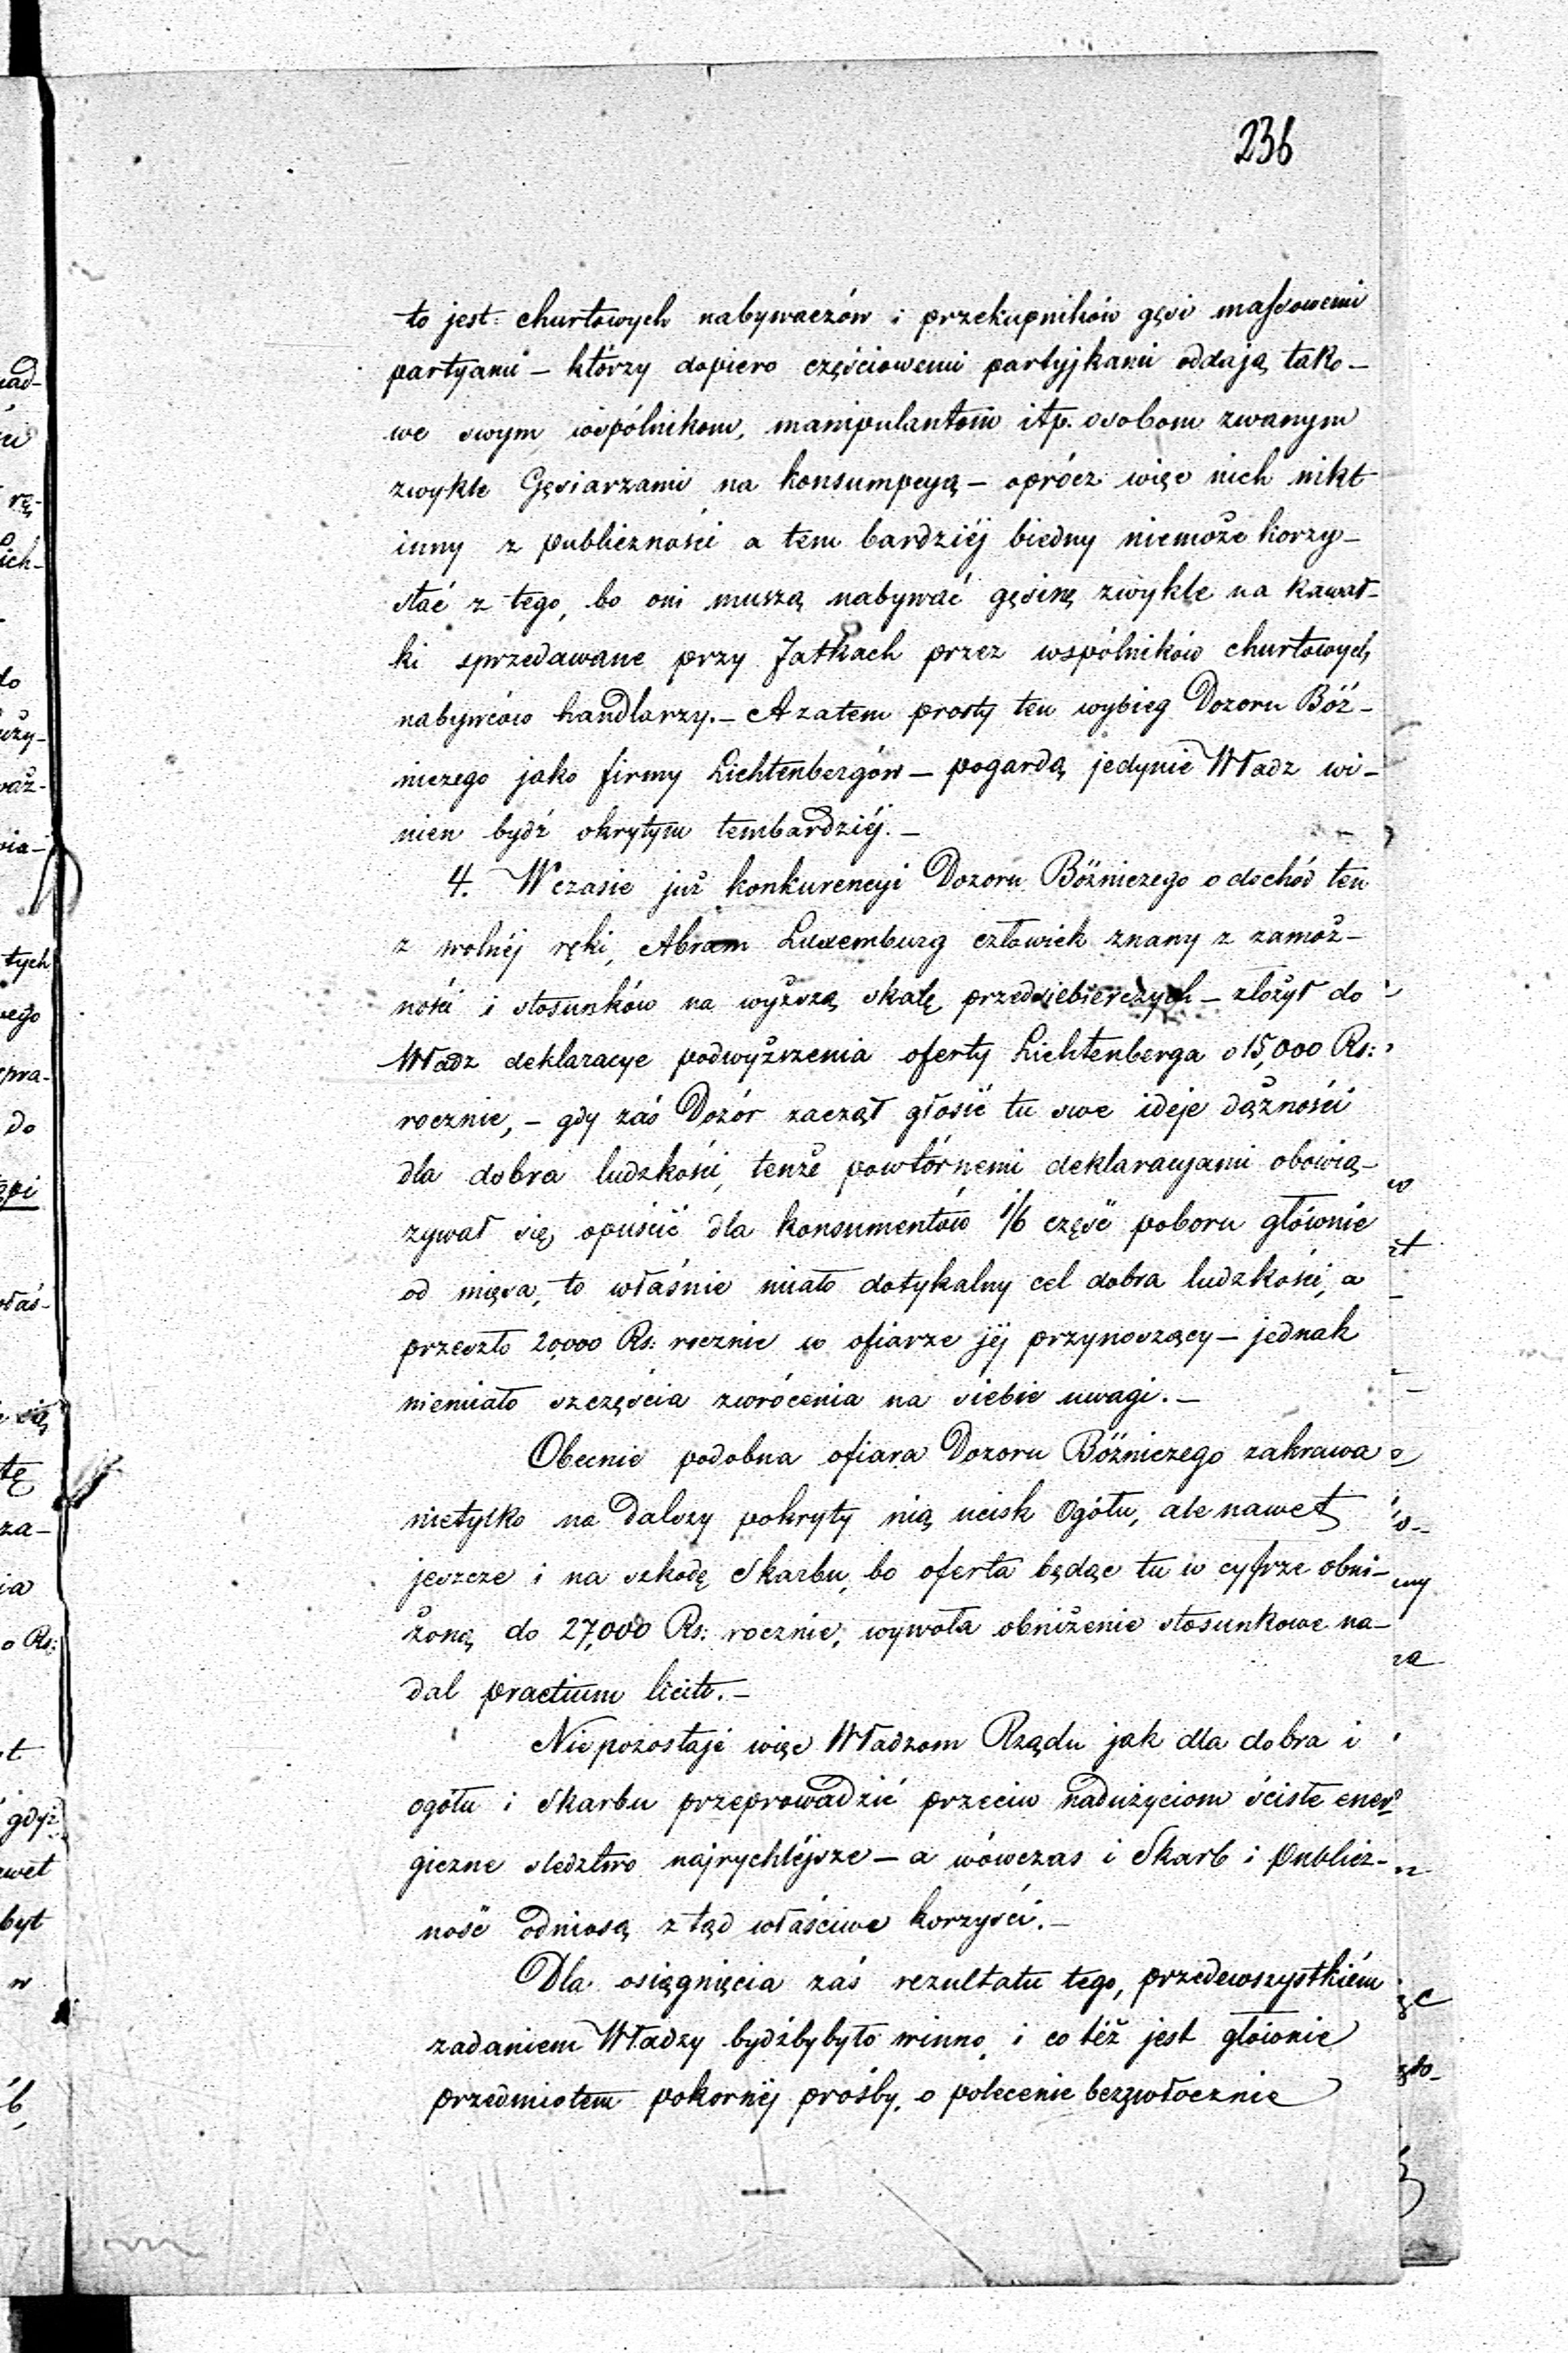 236
to jest churtowych nabywaczów i przekupników gęsi massowemi
partyami – którzy dopiero częściowemi partyjkami oddają tako–
we swym wspólnikom, manipulantom itp. osobom zwanym
zwykle Gęsiarzami na konsumpcyą – oprócz więc nich nikt
inny z publiczności a tem bardziéj biedny niemoże korzy–
stać z tego, bo oni muszą nabywać gęsinę zwykle na kawał–
ki sprzedawane przy Jatkach przez wspólników churtowych
nabywców handlarzy. – A zatem prosty ten wybieg Dozoru Bóż–
niczego jako firmy Lichtenbergów – pogardą jedynie Władz wi–
nien bydź okrytym tembardziéj. –
4. W czasie już konkurencyi Dozoru Bóżniczego o dochód ten
z wolnéj ręki, Abram Luxemburg człowiek znany z zamoż–
ności i stosunków na wyższą skalę przedsiebierczych – złożył do
Władz deklaracye podwyższenia oferty Lichtenberga o 15,000 Rs:
rocznie, – gdy zaś Dozór zaczął głosić tu swe ideje dążności
dla dobra ludzkości, tenże powtórnemi deklaracyami obowią–
zywał się opuścić dla konsumentów 1/6 część poboru głównie
od mięsa, to właśnie miało dotykalny cel dobra ludzkości, a
przeszło 20,000 Rs: rocznie w ofiarze jéj przynoszący – jednak
niemiało szczęścia zwrócenia na siebie uwagi. –
Obecnie podobna ofiara Dozoru Bóżniczego zakrawa
nietylko na dalszy pokryty nią ucisk Ogółu, ale nawet
jeszcze i na szkodę Skarbu, bo oferta będąc tu w cyfrze obni–
żoną do 27,000 Rs: rocznie, wywoła obniżenie stosunkowe na–
dal practium liciti. –
Niepozostaje więc Władzom Rządu jak dla dobra i
ogółu i Skarbu przeprowadzić przeciw nadużyciom ścisłe ener
giczne sledztwo najrychléjsze – a wówczas i Skarb i Publicz–
ność odniosą ztąd właściwe korzyści. –
Dla osiągnięcia zaś rezultatu tego, przedewszystkiém
zadaniem Władzy bydźbybyło winno, i co téż jest głównie
przedmiotem pokornéj prośby, o polecenie bezzwłocznie